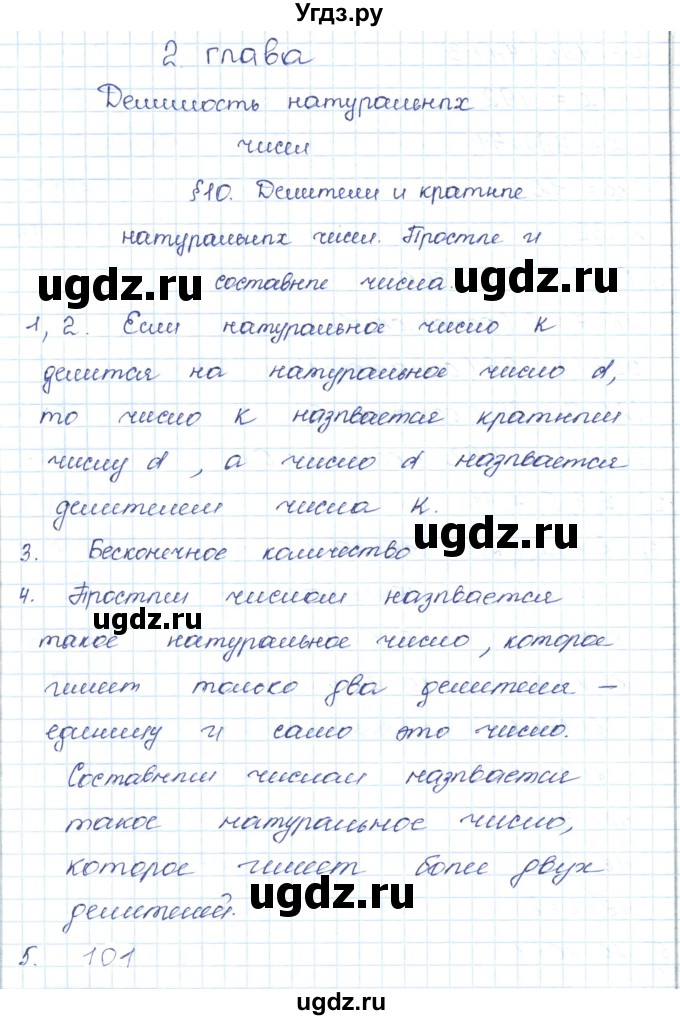 Угдз.ру
2 глава
Делимость натуральных
чисел
§10. Делители и кратные
натуральных чисел. Простые и
ugdz.ru составные числа. ugdz.ru
1, 2. Если натуральное число к
делится на натуральное число d,
то число к называется кратным
числу d, а число d называется
делителем числа к.
3. Бесконечное количество ugdz.ru
4. Простым числом называется
ugdz.ru
такое натуральное число, которое
имеет только два делителя –
единицу и само это число.
Составным числом называется
такое натуральное число,
которое имеет более двух
делителей.
ugdz.ru
5. 101
ugdz.ru